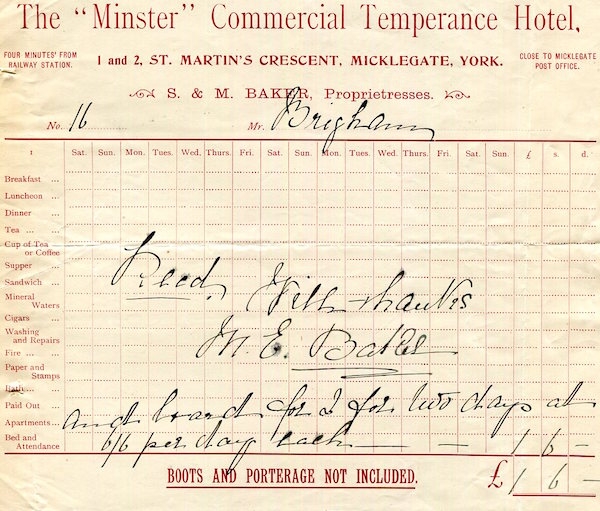 The "Minster" Commercial Temperance Hotel,
FOUR MINUTES' FROM
RAILWAY STATION.
1 and 2, ST. MARTIN'S CRESCENT, MICKLEGATE, YORK.
CLOSE TO MICKLEGATE
POST OFFICE.
S. & M. BAKER, Proprietresses.
No. 16 Mr. Brigham
1 Sat. Sun. Mon. Tues. Wed. Thurs. Fri. Sat. Sun. Mon. Tues. Wed. Thurs. Fri. Sat. Sun. £ s. d.
Breakfast ...
Luncheon ...
Dinner ...
Tea ... ...
Cup of Tea
or Coffee
Supper ...
Sandwich ...
Mineral
Waters
Cigars ...
Washing
and Repairs
Fire ... ...
Paper and
Stamps
Bath... ...
Paid Out ...
Apartments...
Bed and
Attendance
Recd. With thanks
M. E. Baker
and board for 2 for two days at
6/6 per day each — — 1 6 —
BOOTS AND PORTERAGE NOT INCLUDED.
£1 6 —